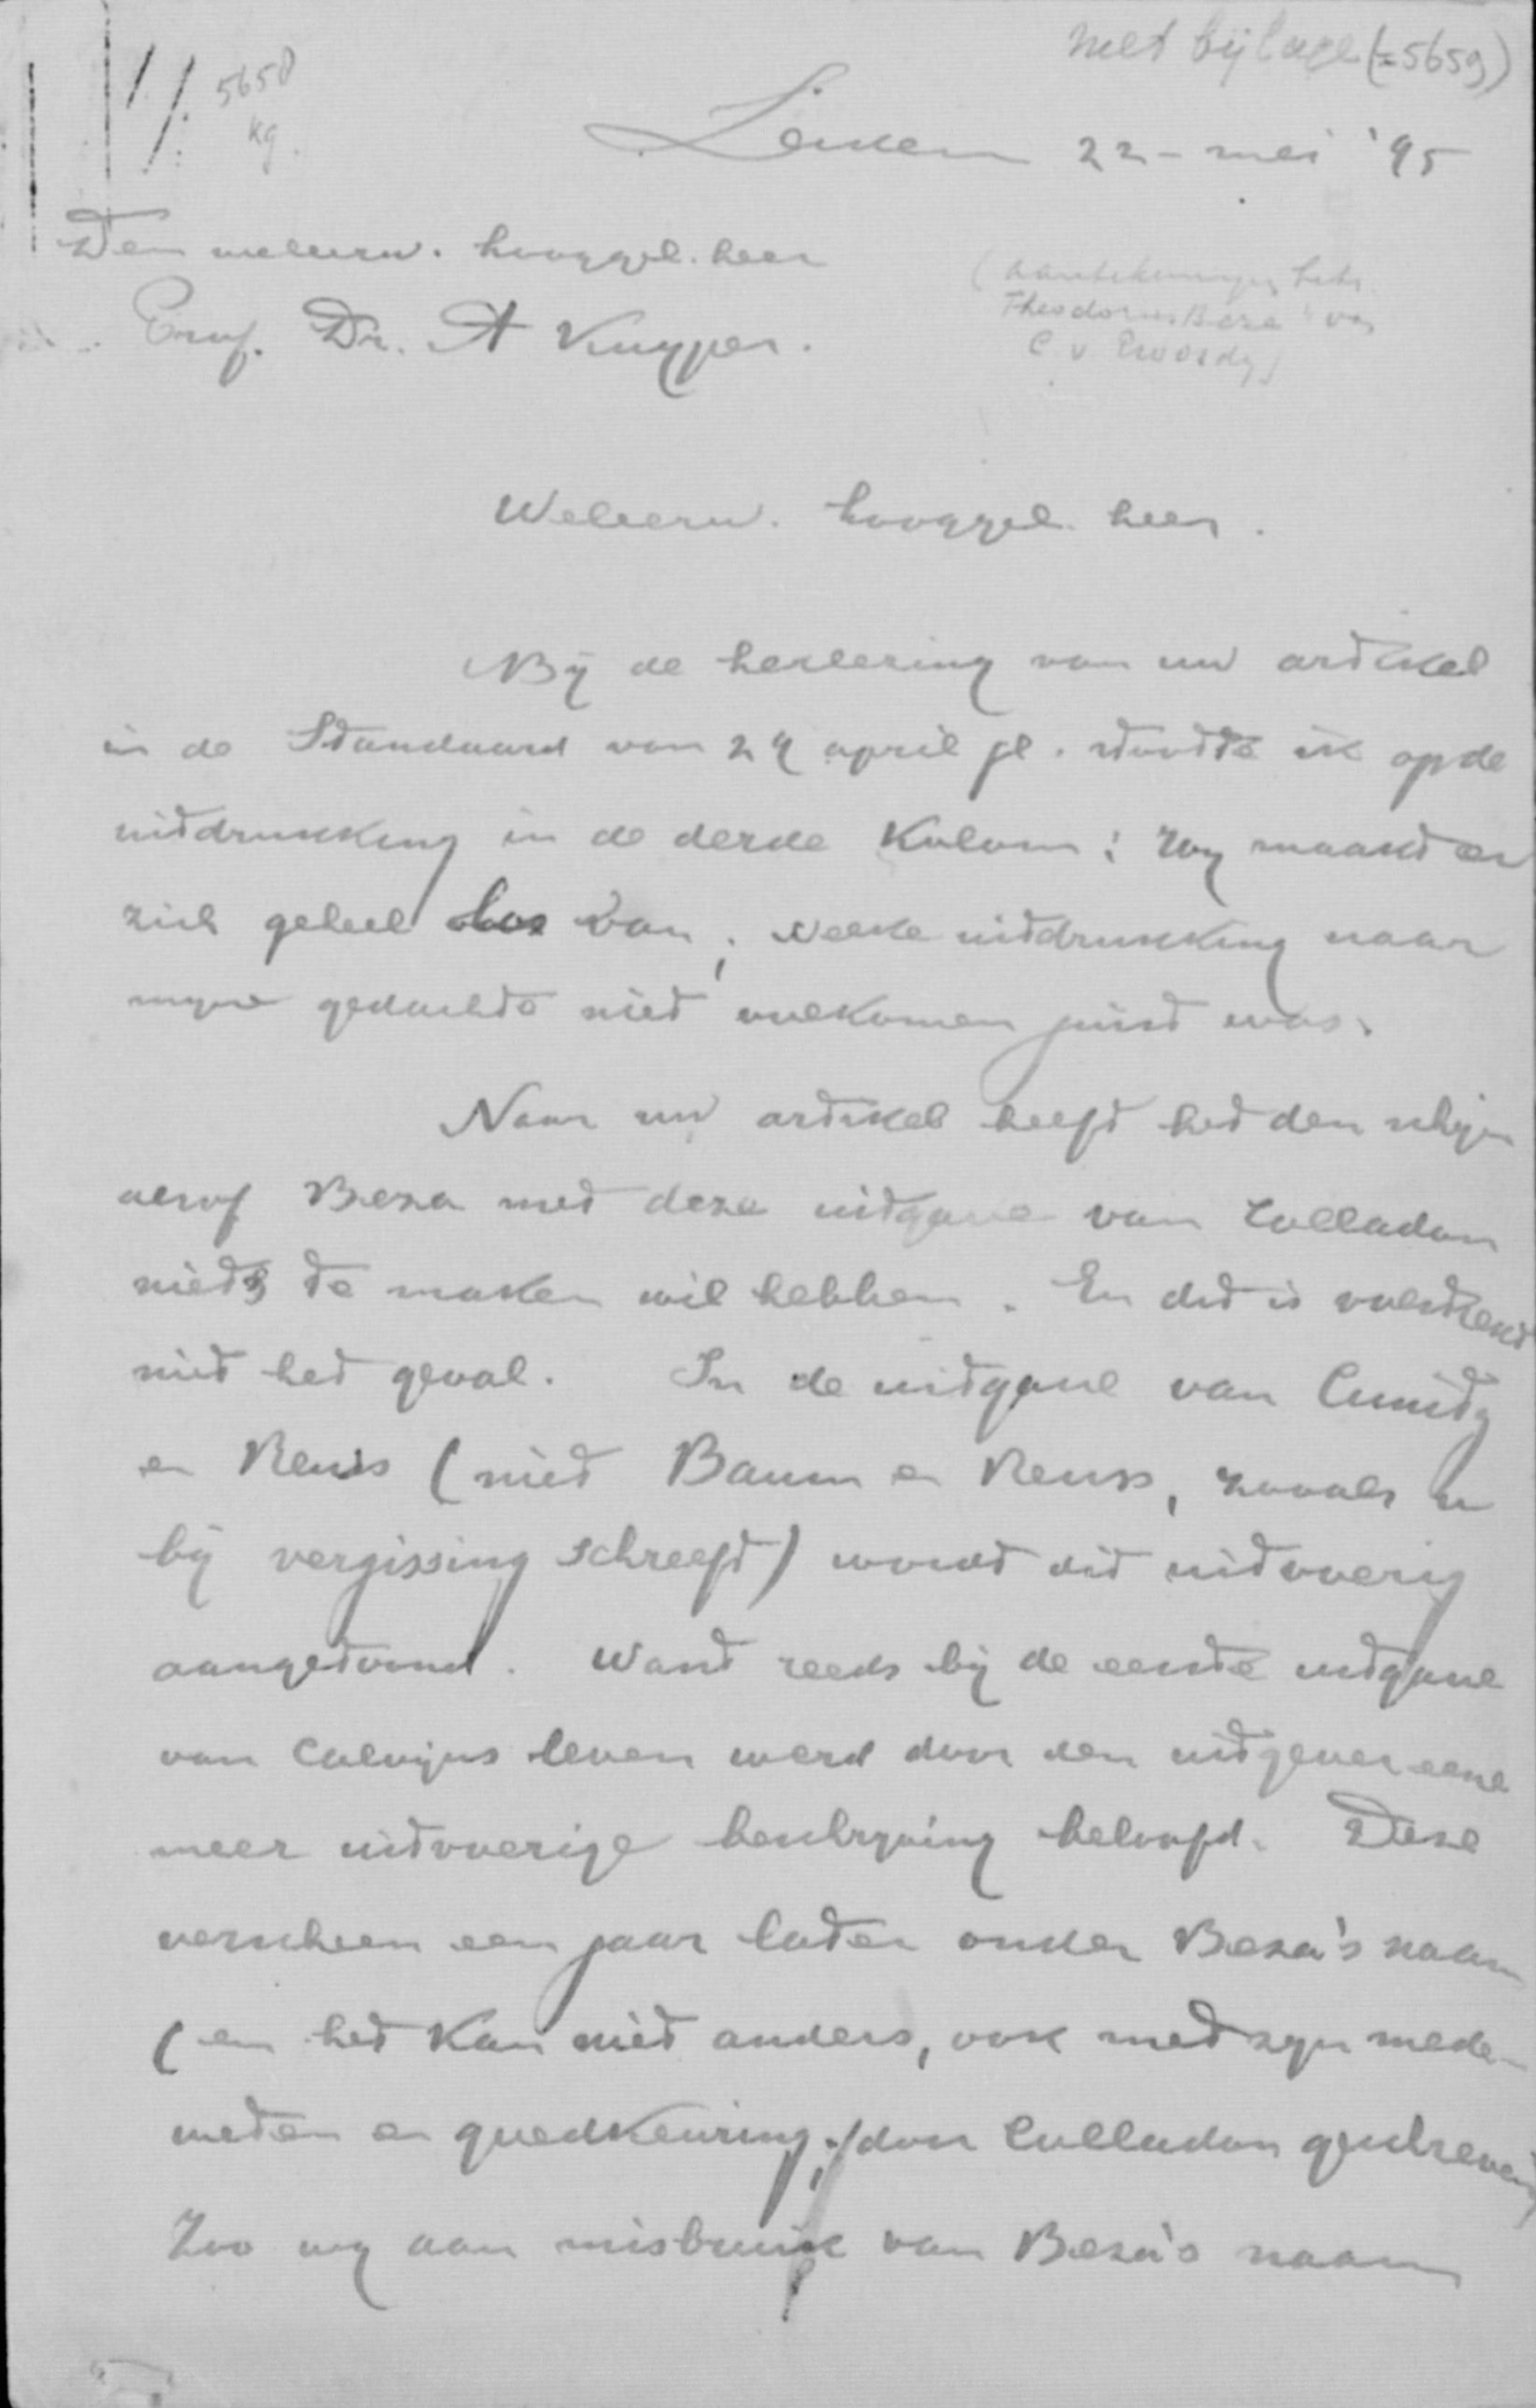 met bijlage (=5659)
5658
kg.
22 - mei '95
Den weleerw. hooggel. heer
Prof. Dr. A Kuyper.
(Aantekeningen betr.
Theodorus Beza van
C. v. Proosdij)
Weleerw. hooggel. heer.
Bij de herlezing van uw artikel
in de Standaard van 24 april jl. stootte ik op de
uitdrukking in de derde kolom: hij maakt er
zich geheel los van; welke uitdrukking naar
mijne gedachte niet volkomen juist was.
Naar uw artikel heeft het den schijn
alsof Beza met deze uitgave van Colladon
niets te maken wil hebben. En dit is volstrekt
niet het geval. In de uitgave van Cunitz
en Reuss (niet Baum en Reuss, zooals u
bij vergissing schreeft) wordt dit uitvoerig
aangetoond. Want reeds bij de eerste uitgave
van Calvijns leven werd door den uitgever eene
meer uitvoerige beschrijving beloofd. Deze
verscheen een jaar later onder Beza's naam
(en het kan niet anders, ook met zijn mede-
weten en goedkeuring, door Colladon geschreven)
Zoo wij aan misbruik van Beza's naam